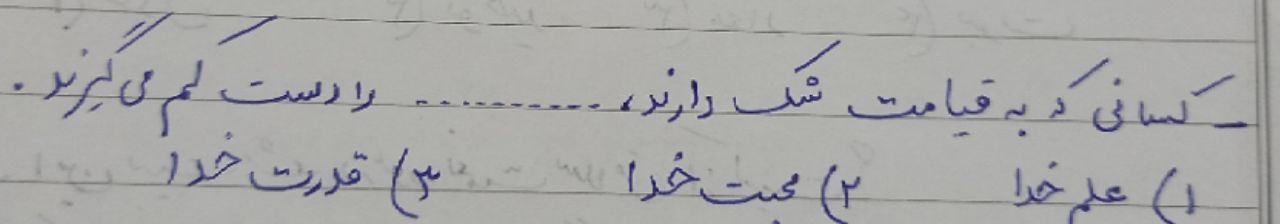 - کسانی که به قیامت شک دارند، .......... را دست کم می گیرند.
۱) علم خدا ۲) محبت خدا ۳) قدرت خدا